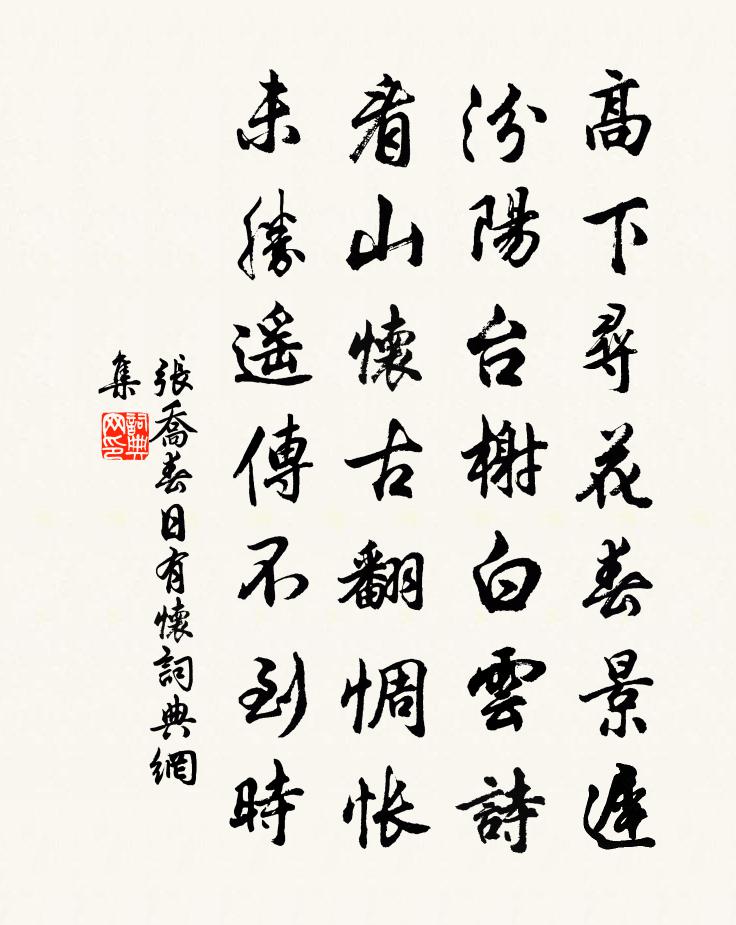 高下尋花春景遲
汾陽台榭白雲詩
看山懷古翻惆悵
未勝遥傳不到時
張喬春日有懷詞典網
集
詞典
网印